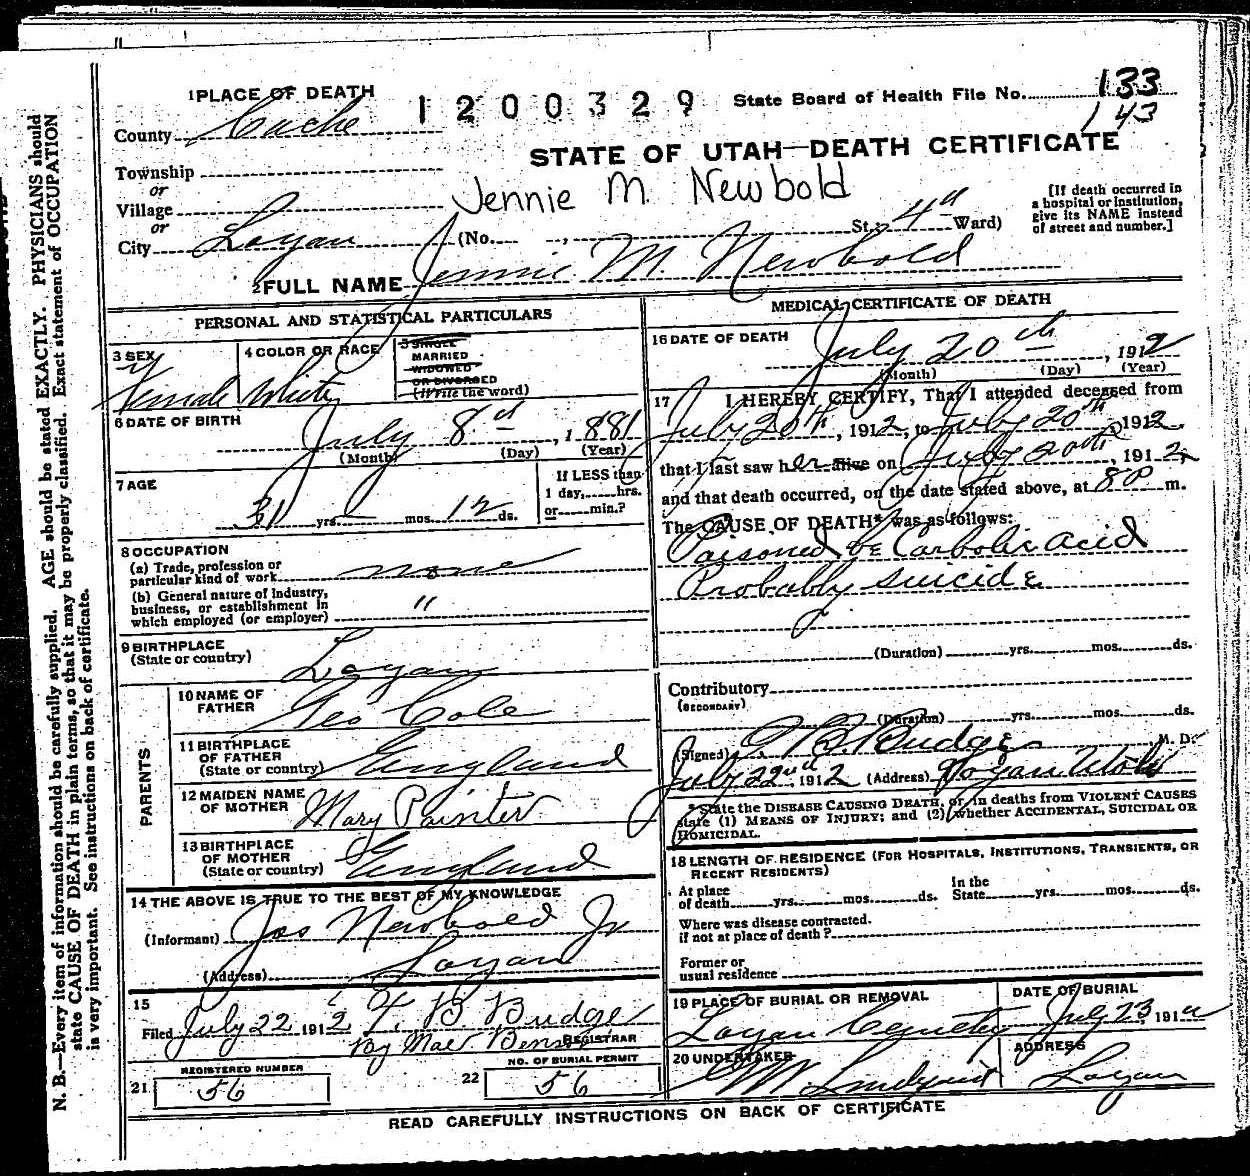 1 PLACE OF DEATH
1200329
State Board of Health File No. 133
143
County Cache
STATE OF UTAH—DEATH CERTIFICATE
Township
or
Village
or
Jennie M. Newbold
[If death occurred in
a hospital or institution,
give its NAME instead
of street and number.]
City Logan (No. , St.; 4th Ward)
2 FULL NAME Jennie M. Newbold
PERSONAL AND STATISTICAL PARTICULARS
3 SEX
Female
4 COLOR OR RACE
White
5 SINGLE
MARRIED
WIDOWED
OR DIVORCED
(Write the word)
6 DATE OF BIRTH
July 8th, 1881
(Month) (Day) (Year)
7 AGE
31 yrs. mos. 12 ds.
If LESS than
1 day, hrs.
or min.?
8 OCCUPATION
(a) Trade, profession or
particular kind of work none
(b) General nature of Industry,
business, or establishment in
which employed (or employer) "
9 BIRTHPLACE
(State or country) Logan
PARENTS
10 NAME OF
FATHER Geo Cole
11 BIRTHPLACE
OF FATHER
(State or country) England
12 MAIDEN NAME
OF MOTHER Mary Painter
13 BIRTHPLACE
OF MOTHER
(State or country) England
14 THE ABOVE IS TRUE TO THE BEST OF MY KNOWLEDGE
(Informant) Jos Newbold Jr
(Address) Logan
15
Filed July 22 1912 T. B Budge
REGISTRAR
21 REGISTERED NUMBER
56
22 NO. OF BURIAL PERMIT
56
MEDICAL CERTIFICATE OF DEATH
16 DATE OF DEATH
July 20th, 1912
(Month) (Day) (Year)
17 I HEREBY CERTIFY, That I attended deceased from
July 20th, 1912, to July 20th, 1912.
that I last saw her alive on July 20th, 1912,
and that death occurred, on the date stated above, at 8 P m.
The CAUSE OF DEATH* was as follows:
Poisoned by Carbolic Acid
Probably suicide
(Duration) yrs. mos. ds.
Contributory
(SECONDARY)
(Duration) yrs. mos. ds.
(Signed) B. Budge M. D.
July 22nd 1912 (Address) Logan Utah
* State the DISEASE CAUSING DEATH, or, in deaths from VIOLENT CAUSES
state (1) MEANS OF INJURY; and (2) whether ACCIDENTAL, SUICIDAL OR
HOMICIDAL.
18 LENGTH OF RESIDENCE (FOR HOSPITALS, INSTITUTIONS, TRANSIENTS, OR
RECENT RESIDENTS)
At place
of death yrs. mos. ds.
In the
State yrs. mos. ds.
Where was disease contracted.
if not at place of death?
Former or
usual residence
19 PLACE OF BURIAL OR REMOVAL
Logan Cemetery
DATE OF BURIAL
July 23, 1912
20 UNDERTAKER
Lindquist
ADDRESS
Logan
READ CAREFULLY INSTRUCTIONS ON BACK OF CERTIFICATE
N. B.—Every item of information should be carefully supplied. AGE should be stated EXACTLY. PHYSICIANS should
state CAUSE OF DEATH in plain terms, so that it may be properly classified. Exact statement of OCCUPATION
is very important. See instructions on back of certificate.